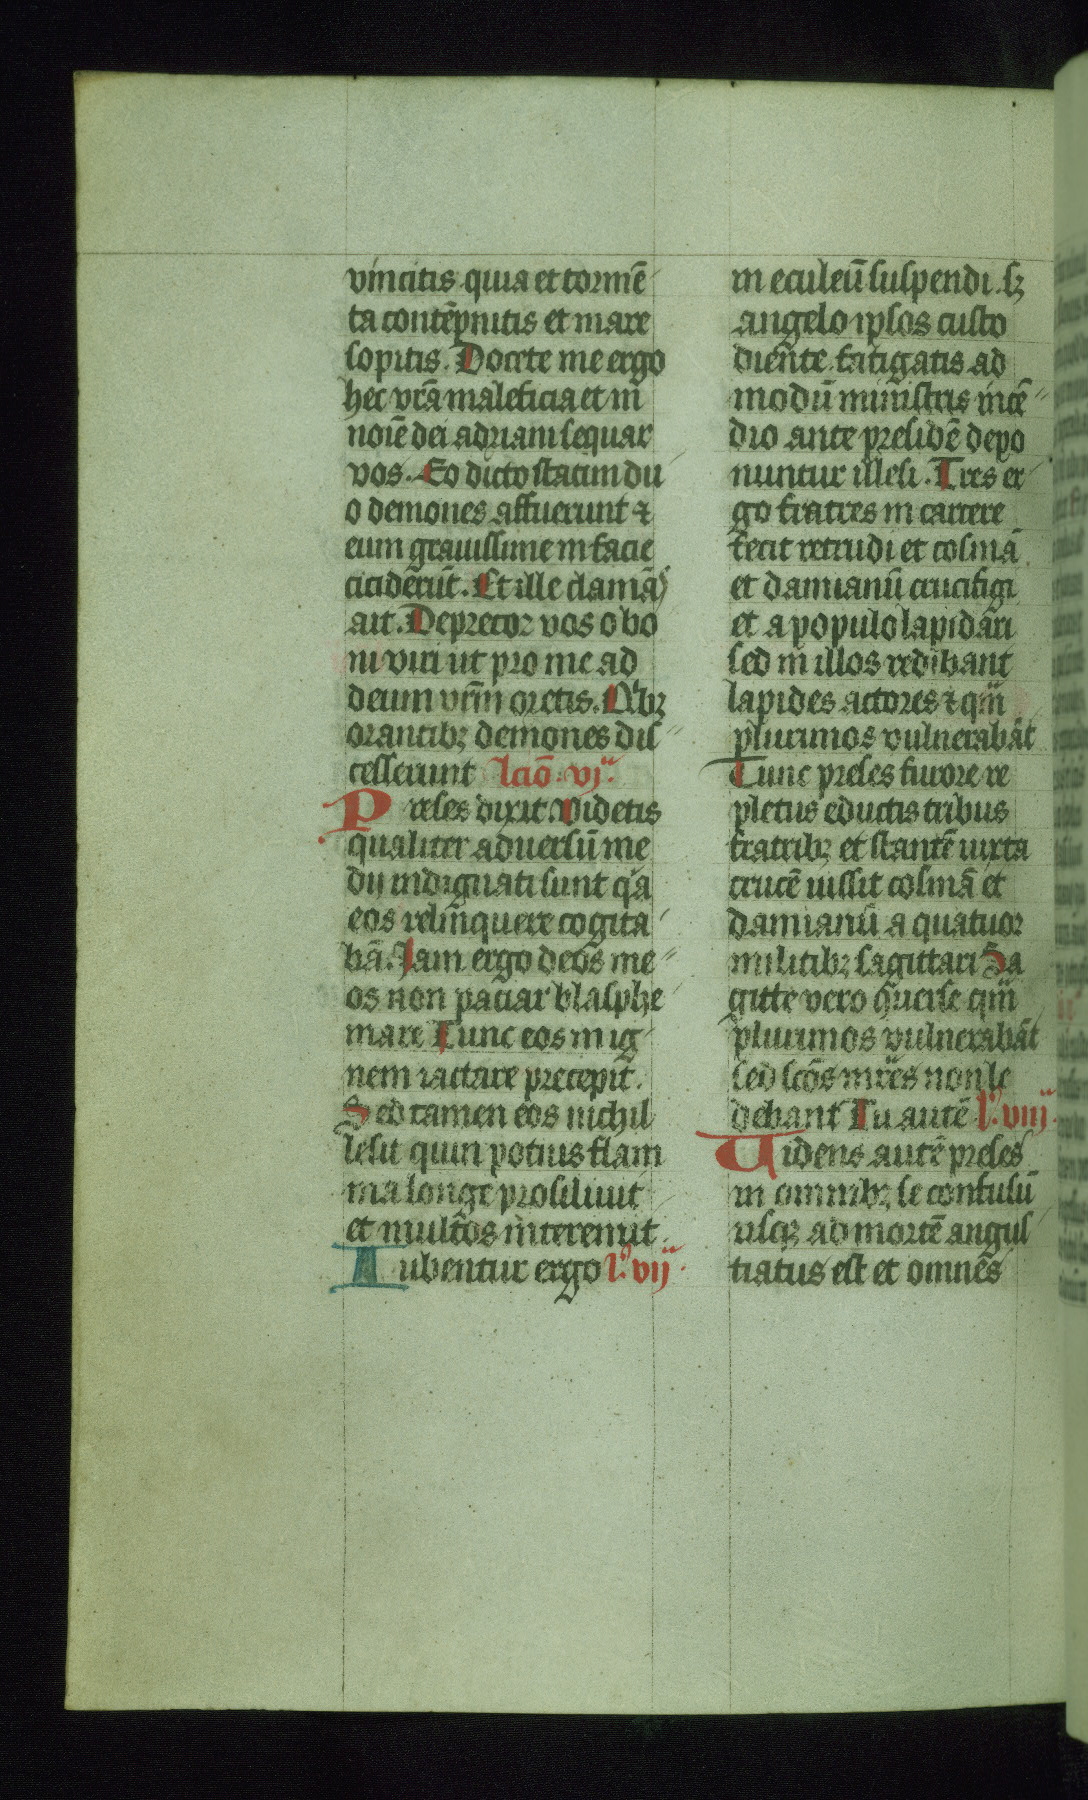 vincitis quia et tormē
ta contēpnitis et mare
sopitis. Docete me ergo
hec vrā maleficia et in
noīe dei adriani sequar
vos. Eo dicto statim du
o demones affuerunt ⁊
eum grauissime in facie
cicidērūt. Et ille clamās
ait. Deprecor vos o bo
ni viri ut pro me ad
deum vrm̄ oretis. Qͥbꝫ
orantibꝫ demones dis
cesserunt lcīo. vj͛.
Preses dixit. Videtis
qualiter aduersū me
dij indignati sunt qͥa
eos relīnquere cogita
bā. Jam ergo deos me
os non paciar blasphe
mare Tunc eos in ig
nem iactare precepit.
Sed tamen eos nichil
lesit quin potius flam
ma longe prosiliuit
et multos interemit.
Iubentur ergo lͦ. vij.
in eculeū suspendi. sꝫ
angelo ipsos custo
diente fatigatis ad
modū ministris incē
dio ante presidē depo
nuntur illesi. Tres er
go fratres in carcere
fecit retrudi et cosmā
et damianū crucifigi
et a populo lapidari
sed in illos redibant
lapides actores ⁊ qm̄
plurimos vulnerabāt
Tunc preses furore re
pletus eductis tribus
fratribꝫ et stantē iuxta
crucē iussit cosmā et
damianū a quatuor
militibꝫ sagittari Sa
gitte vero 9uerse qm̄
plurimos vulnerabāt
sed scōs mr̄es non le
debant Tu autē lͦ. viij.
Videns autē preses
in omnibꝫ se confusū
usqꝫ ad mortē angus
tiatus est et omnēs